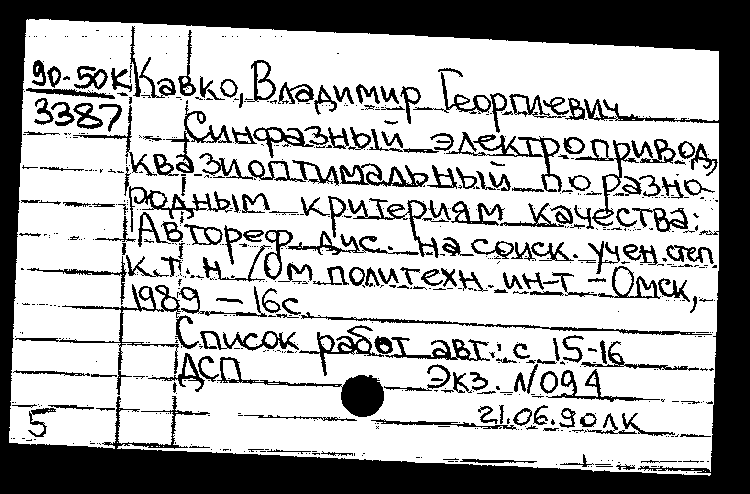 90-50К Кавко, Владимир Георгиевич
3387 Синфазный электропривод,
квазиоптимальный по разно-
родным критериям качества:
Автореф. дис. на соиск. учен. степ
к.т.н. /Ом политехн. ин-т - Омск,
1989 - 16с.
Список работ авт.: с. 15-16
ДСП Экз. N094
21.06.90лк
5